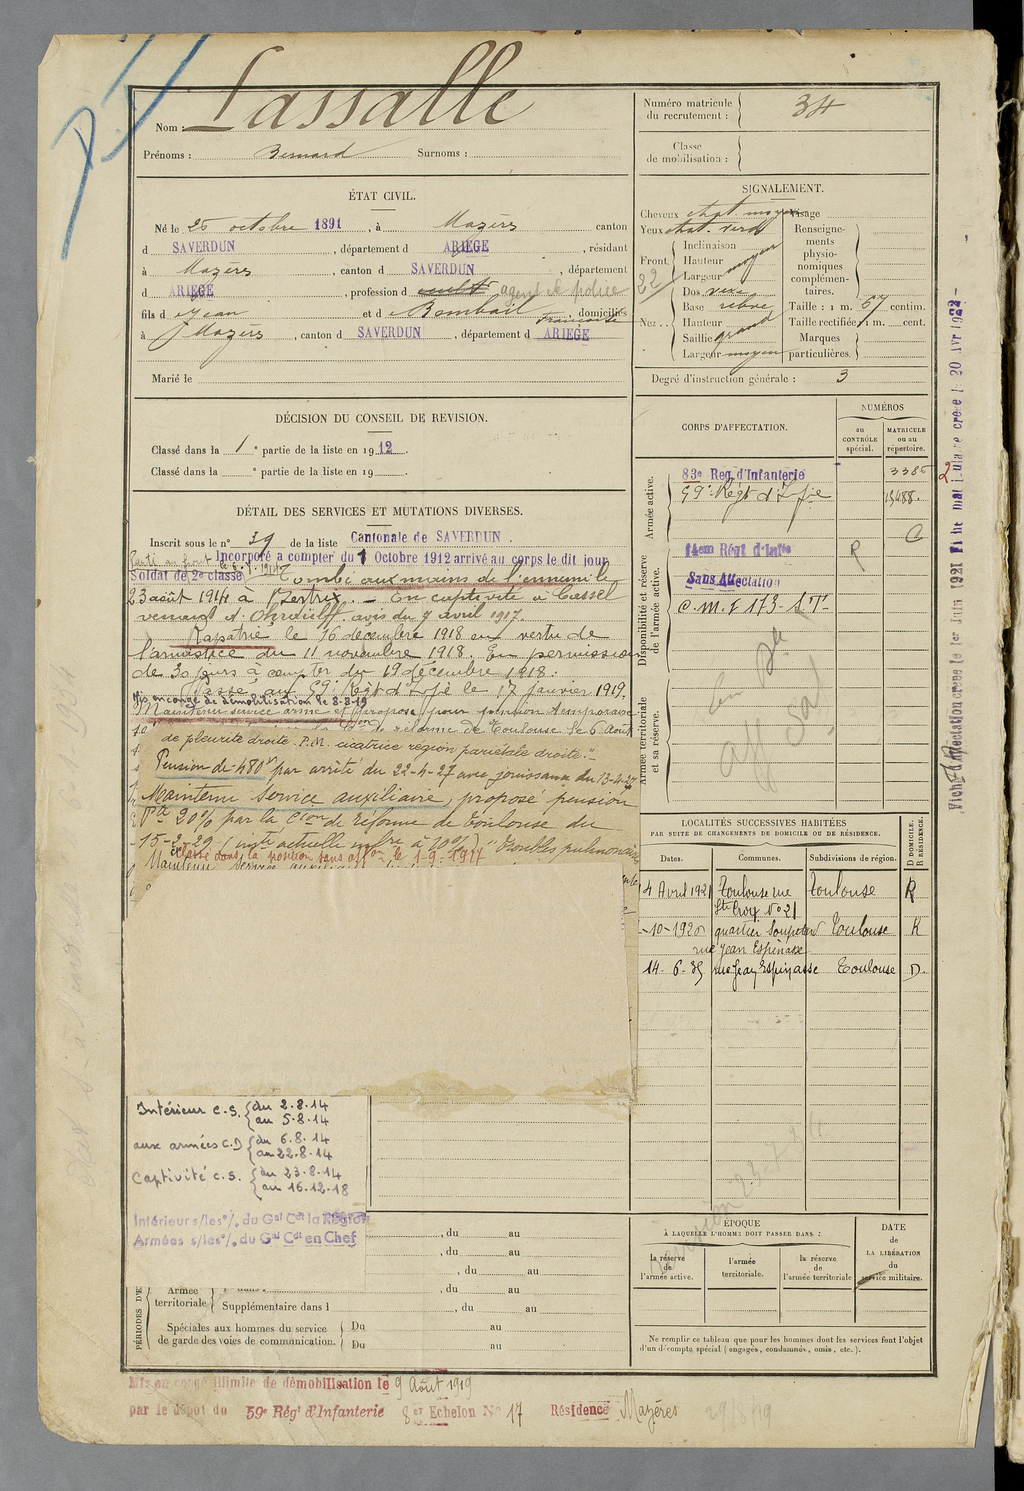 Nom : Lassalle
Prénoms : Bernard Surnoms :
Numéro matricule du recrutement : 34
Classe de mobilisation :
ÉTAT CIVIL.
Né le 25 octobre 1891, à Mazères canton
d SAVERDUN, département d ARIEGE, résidant
à Mazères, canton d SAVERDUN, département
d ARIEGE, profession d cult agent de police
fils d Jean et d Bombail Françoise, domiciliés
à Mazères, canton d SAVERDUN, département d ARIEGE
Marié le
SIGNALEMENT.
Cheveux chat moyen Visage
Yeux chat. verd Renseignements physionomiques complémentaires.
Front. Inclinaison
Hauteur moyen
Largeur
22
Nez.. Dos vexe
Base relevé
Hauteur
Saillie grand
Largeur moyen
Taille : 1 m. 67 centim.
Taille rectifiée 1 m. cent.
Marques particulières.
Degré d'instruction générale : 3
DÉCISION DU CONSEIL DE REVISION.
Classé dans la 1e partie de la liste en 1912.
Classé dans la e partie de la liste en 19
CORPS D'AFFECTATION.
NUMÉROS
au CONTRÔLE spécial.
MATRICULE ou au répertoire.
Armée active.
83e Reg. d'Infanterie
59e Régt d'Infie 15488.
Disponibilité et réserve de l'armée active.
14em Régt d'Infie R
Sans Affectation
C.M.F 173 - S.T-
Armée territoriale et sa réserve.
aff Sal
DÉTAIL DES SERVICES ET MUTATIONS DIVERSES.
Inscrit sous le n° 39 de la liste Cantonale de SAVERDUN.
Incorporé a compter du 1 Octobre 1912 arrivé au corps le dit jour
Parti au front le 6.8.1914
Soldat de 2e classe Tombé aux mains de l'ennemi le
23 août 1914 à Bertrix. - En captivité à Cassel
venant d'Ohrdruff. avis du 7 avril 1917.
Rapatrié le 16 décembre 1918 en vertu de
l'armistice du 11 novembre 1918. En permission
de 30 jours à compter du 19 décembre 1918.
Passé au 59e Régt d'Infie le 17 janvier 1919.
Mis en congé de démobilisation le 8-8-19
Maintenu service armé et proposé pour pension temporaire
de réforme de Toulouse le 6 Août
de pleurite droite. P.M. cicatrice région pariétale droite."
Pension de 480f par arrêté du 22-4-27 avec jouissance du 13-4-27
Maintenu Service auxiliaire, proposé pension
Pte 20% par la Cion de réforme de Toulouse du
15-2-29 (invté actuelle infre à 10%) : troubles pulmonaires
Classé dans la position sans affon le 1-9-1927
LOCALITÉS SUCCESSIVES HABITÉES
PAR SUITE DE CHANGEMENTS DE DOMICILE OU DE RÉSIDENCE.
Dates. Communes. Subdivisions de région. D DOMICILE. R RÉSIDENCE.
4 Avril 1921 Toulouse rue Ste Croix No 21 Toulouse R
-10-1920 quartier Soupetard rue Jean Espinasse Toulouse R
14-6-35 rue Jean Espinasse Toulouse D.
Intérieur C.S. du 2.8.14 au 5.8.14
aux armées C.D du 6.8.14 au 22.8.14
Captivité C.S. du 23.8.14 au 16.12.18
Intérieur s/les o/. du Gal Cdt la Région
Armées s/les o/. du Gal Cdt en Chef
, du au
, du au
, du au
PÉRIODES D'E
Armée territoriale
Supplémentaire dans l , du au
Spéciales aux hommes du service de garde des voies de communication. Du au
Du au
ÉPOQUE
À LAQUELLE L'HOMME DOIT PASSER DANS :
la réserve de l'armée active.
l'armée territoriale.
la réserve de l'armée territoriale
DATE de LA LIBÉRATION du service militaire.
Ne remplir ce tableau que pour les hommes dont les services font l'objet
d'un décompte spécial (engagés, condamnés, omis, etc.).
Mis en congé illimité de démobilisation le 9 Août 1919
par le dépôt du 59e Régt d'Infanterie 8er Echelon No 17 Résidence Mazères 29/8/19